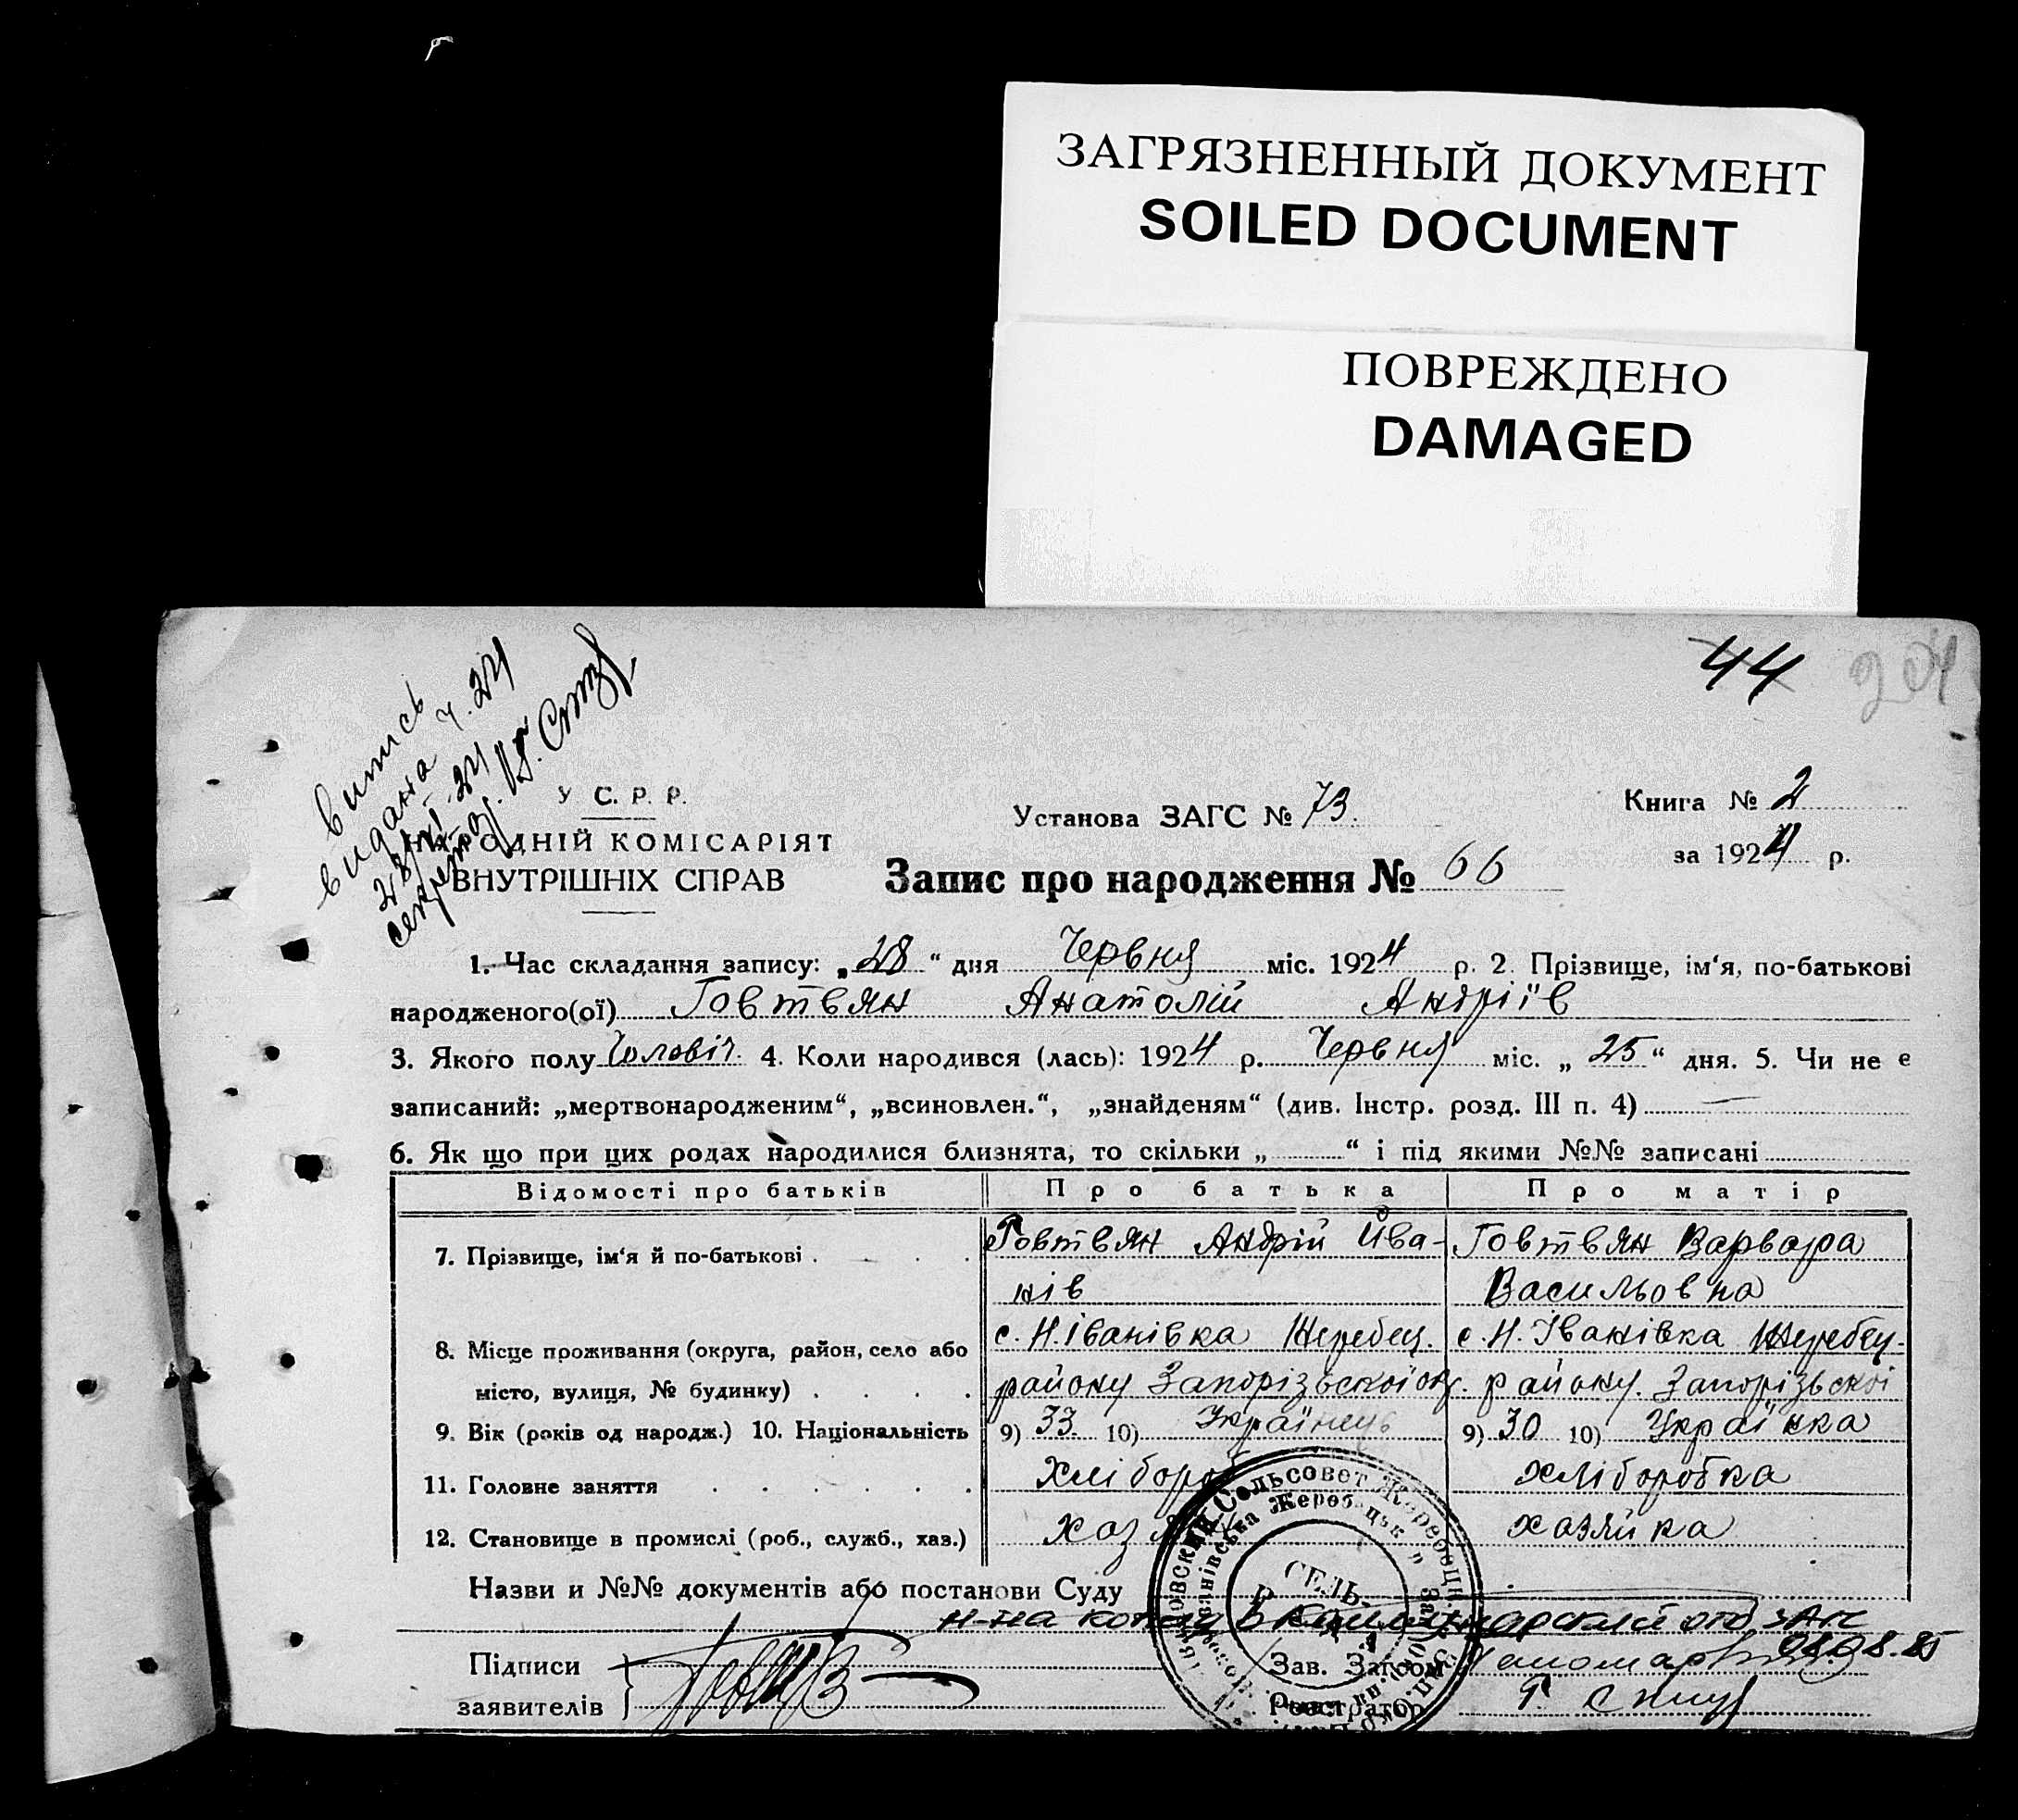 ЗАГРЯЗНЕННЫЙ ДОКУМЕНТ
SOILED DOCUMENT
ПОВРЕЖДЕНО
DAMAGED
44 204
витись
видана ч. 24
У С. Р. Р.
НАРОДНІЙ КОМІСАРІЯТ
ВНУТРІШНІХ СПРАВ
Установа ЗАГС № 73.
Книга № 2
за 1924 р.
Запис про народження № 66
1. Час складання запису: „28“ дня Червня міс. 1924 р. 2. Прізвище, ім‘я, по-батькові
народженого(ої) Говтвян Анатолій Андріїв
3. Якого полу Чоловіч. 4. Коли народився (лась): 1924 р. Червня міс. „25“ дня. 5. Чи не є
записаний: „мертвонародженим“, „всиновлен.“, „знайденям“ (див. Інстр. розд. III п. 4) —
6. Як що при цих родах народилися близнята, то скільки „ “ і під якими №№ записані
Відомості про батьків Про батька Про матір
7. Прізвище, ім‘я й по-батькові . . . . Говтвян Андрій Йва- Говтвян Варвара
нів Васильовна
с. Н. Іванівка Жеребец. с. Н. Іванівка Жеребец-
8. Місце проживання (округа, район, село або
місто, вулиця, № будинку) . . . . району Запорізьскої окр. району. Запорізьскої
9. Вік (років од народж.) 10. Національність 9) 33 10) Українець 9) 30 10) Українка
11. Головне заняття . . . . . . Хлібороб хліборобка
12. Становище в промислі (роб., служб., хаз.) хазяїн хазяйка
Назви и №№ документів або постанови Суду
08.08.85
Підписи
заявителів
Зав. Загсом
Реєстратор
СЕЛЬ-